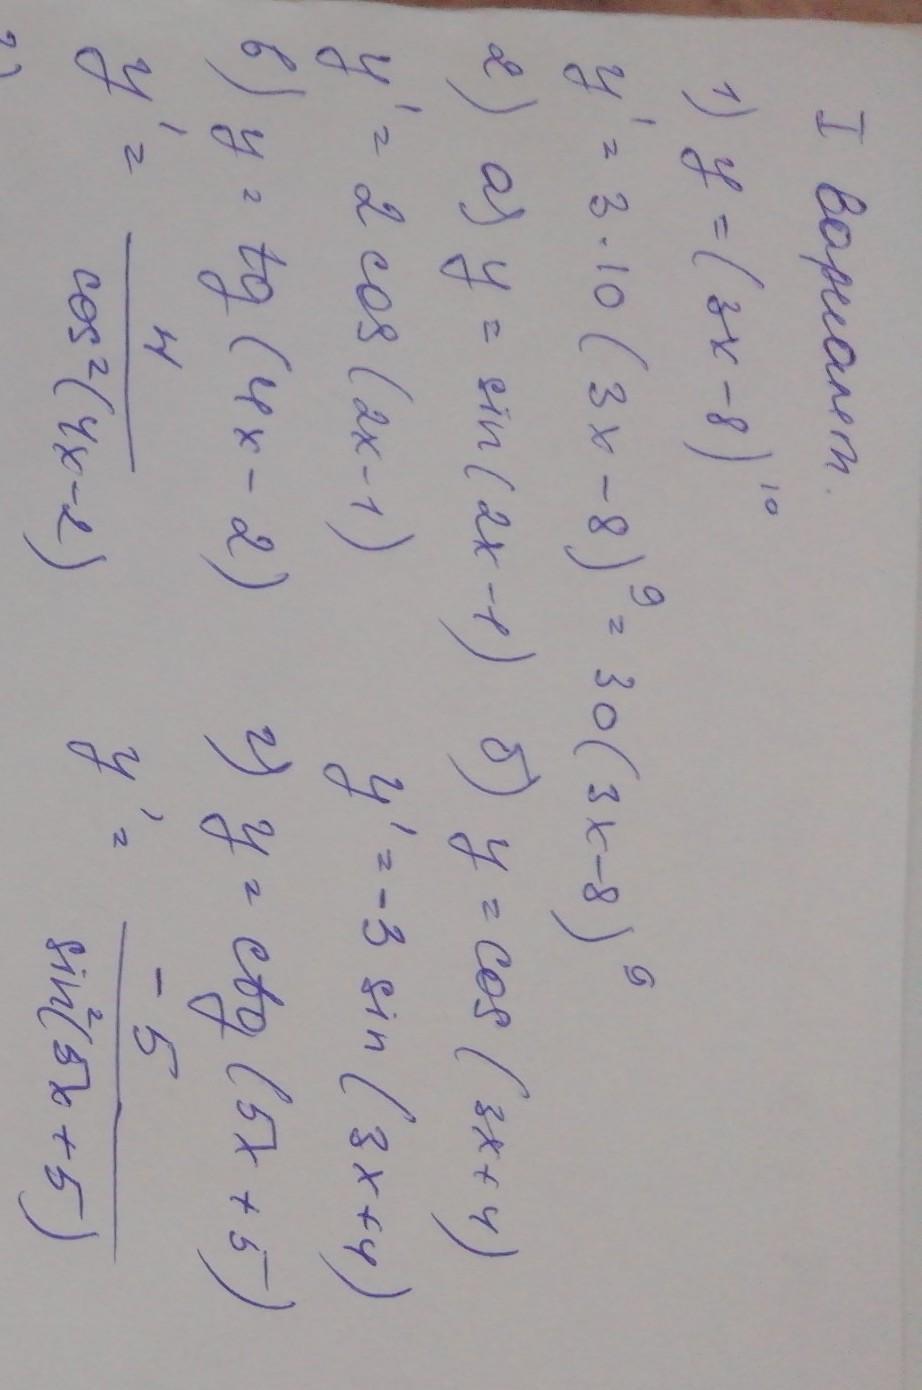 I Вариант.
1) y = (3x - 8)¹⁰
y' = 3 · 10 (3x - 8)⁹ = 30 (3x - 8)⁹
2) а) y = sin (2x - 1) б) y = cos (3x + 4)
y' = 2 cos (2x - 1) y' = -3 sin (3x + 4)
в) y = tg (4x - 2) г) y = ctg (5x + 5)
y' = 4 / cos² (4x - 2) y' = -5 / sin² (5x + 5)